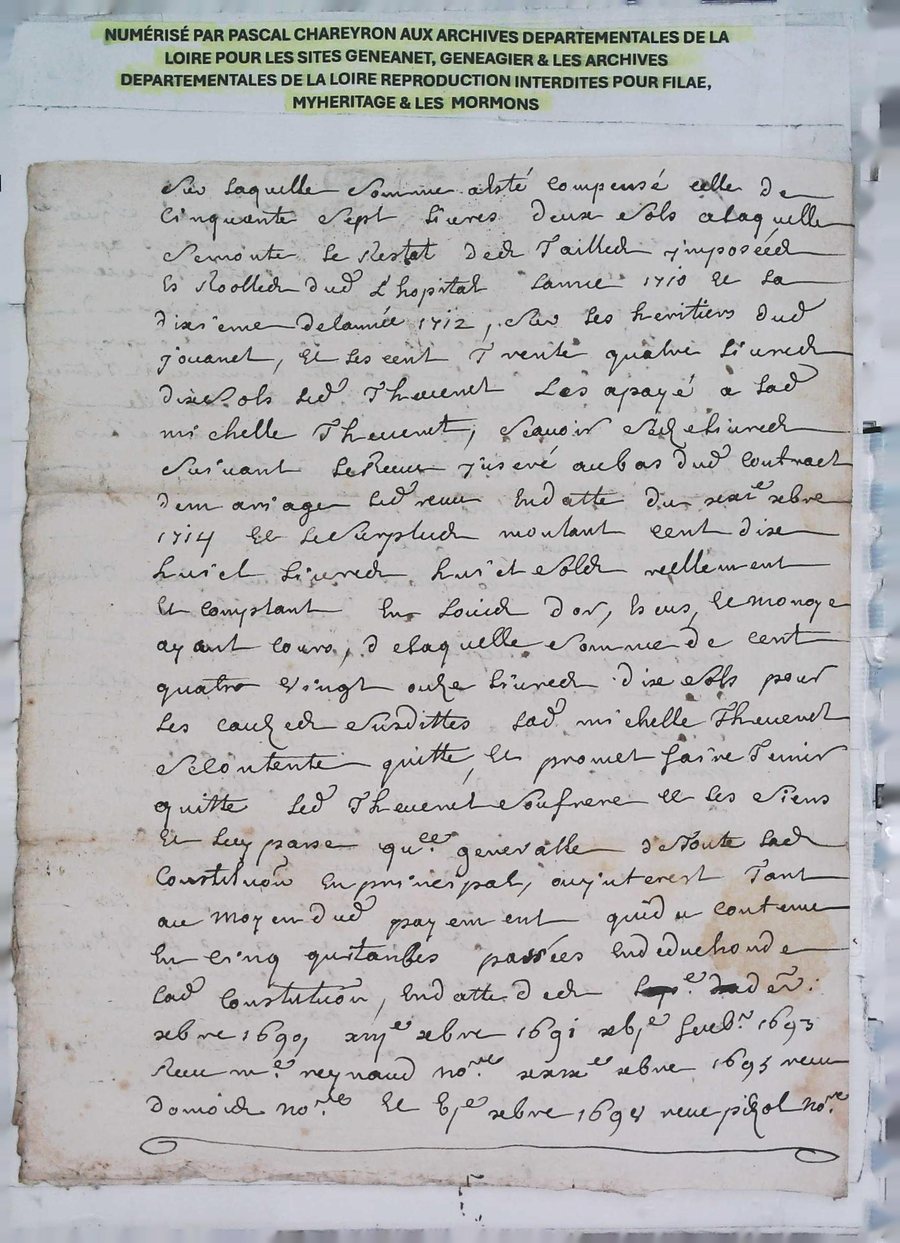 NUMÉRISÉ PAR PASCAL CHAREYRON AUX ARCHIVES DEPARTEMENTALES DE LA
LOIRE POUR LES SITES GENEANET, GENEAGIER & LES ARCHIVES
DEPARTEMENTALES DE LA LOIRE REPRODUCTION INTERDITES POUR FILAE,
MYHERITAGE & LES MORMONS
Sur laquelle Somme a esté Compensé celle de
Cinquante Sept Livres deux Sols a laquelle
Se monte Le Restat des Tailles ymposées
Es Roolles dud L'hopital Lannee 1710 et La
dixieme de lannée 1712, Sur Les heritiers dud
Jouanet, Et Les cent Trente quatre Livres
dix Sols Led Thevenet Les a payé a Lad
michelle Thevenet, Scavoir Seze Livres
Suivant Le Receu ynseré au bas dud Contract
de mariage Led receu En datte du xbre
1714 Et Le Surplus montant cent dix
huict Livres huict Sols reellement
Et Comptant En Louis d'or, Escus, Et Monoye
ayant Cours, de laquelle Somme de cent
quatre Vingt onze Livres dix Sols pour
Les causes Susdittes Lad michelle Thevenet
Se Contente quitte, Et promet faire Tenir
quitte Led Thevenet Son frere Et Les Siens
Et Luy passe qu.ce generalle de Toute Lad
Constitution En principal, ou ynterest Tant
au Moyen dud payement que du Contenu
En Cinq quitances passées En deduction de
Lad Constitution, En datte des
xbre 1690, xiije xbre 1691 febr 1693
Receu m.e reynaud no.re xbre 1695 receu
Domois no.re Et xbre 1698 receu pizol no.re